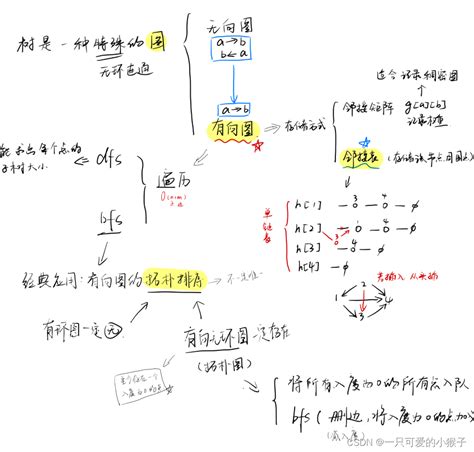 无向图
树是一种特殊的图
无环连通
a→b
b←a
a→b
有向图
→存储方式
适合记录稠密图
邻接矩阵 g[a][b]
邻接表
能求出每个点的
子树大小
dfs
遍历
O(n+m)
bfs
单链表
h[1]
h[2]
h[3]
h[4]
1
2
3
4
经典应用:有向图的拓扑排序
不唯一
有环图一定无
有向无环图一定存在
(拓扑图)
至少存在一个
入度为0的点
将所有入度为0的所有点入队
bfs(删边,将入度为0的点加入
CSDN @一只可爱的小猴子